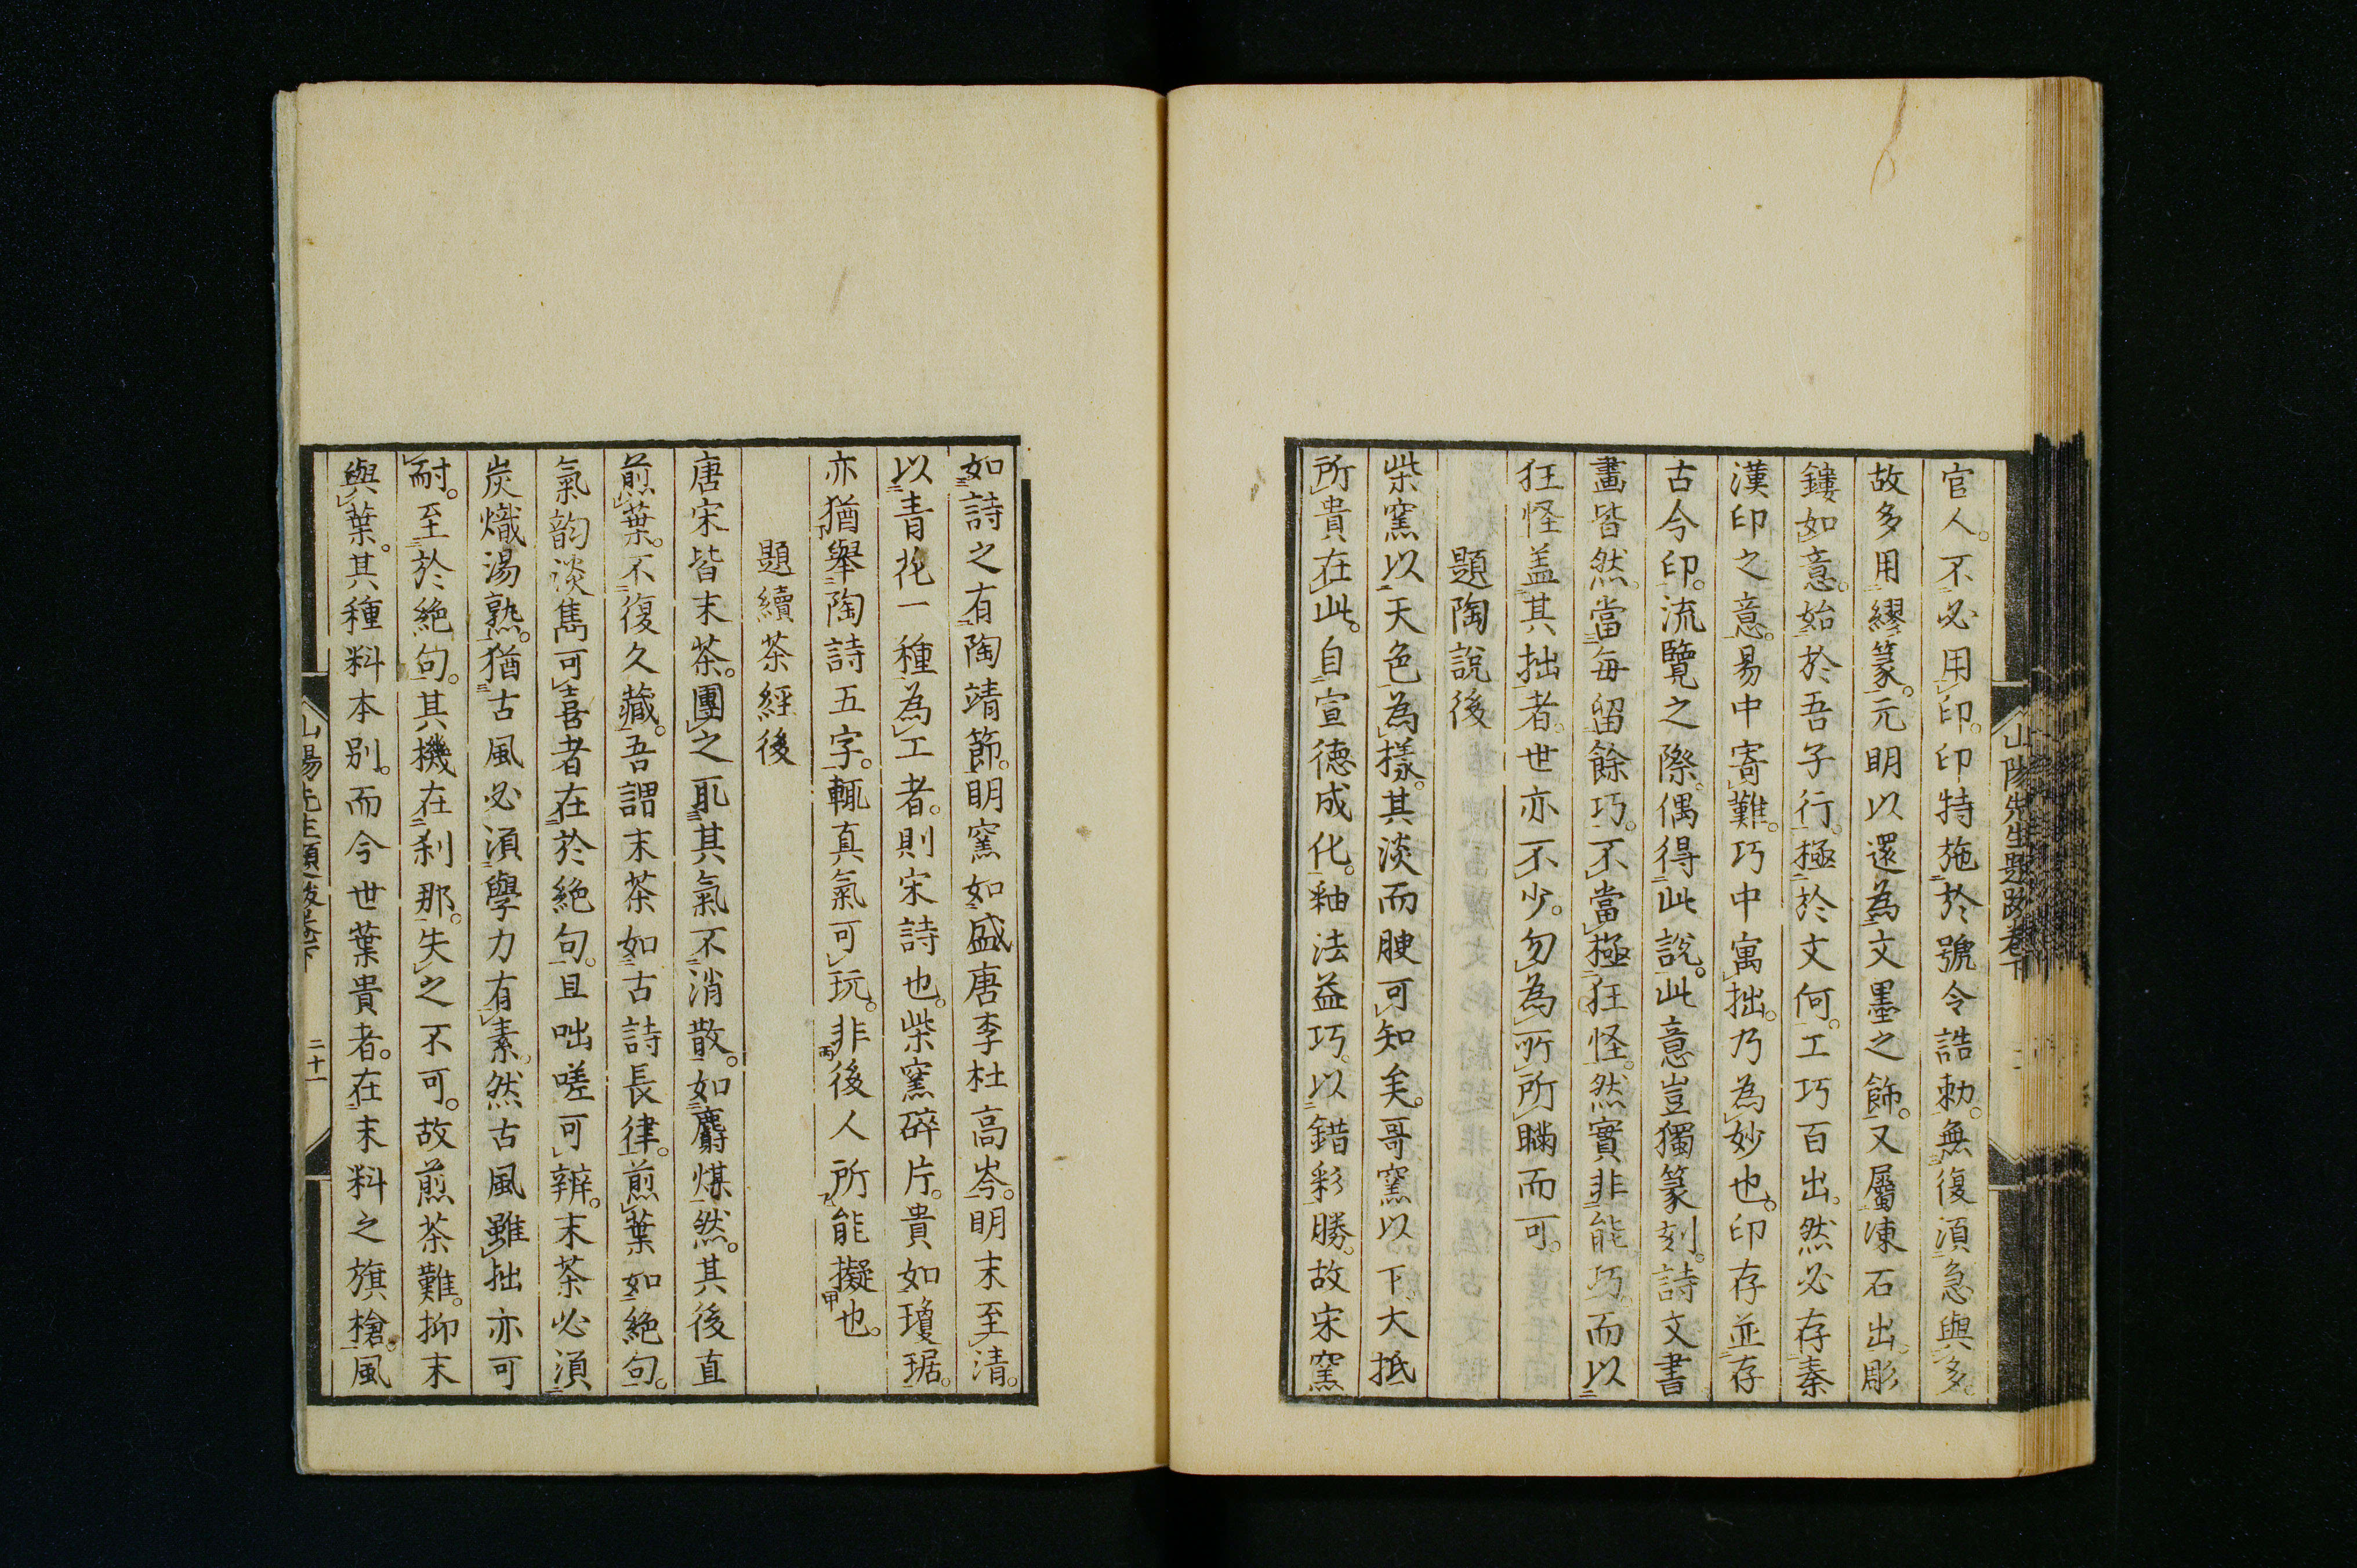 官人。不必用印。印特施於號令誥勅。無復須急與多。
故多用繆篆。元明以還為文墨之飾。又屬凍石出。彫
鏤如意。始於吾子行。極於文何。工巧百出。然必存秦
漢印之意。易中寄難。巧中寓拙。乃為妙也。印存並存
古今印。流覽之際。偶得此說。此意豈獨篆刻。詩文書
畫皆然。當每留餘巧。不當極狂怪。然實非能巧。而以
狂怪盖其拙者。世亦不少。勿為所所瞞而可。
題陶說後
柴窯以天色為樣。其淡而腴可知矣。哥窯以下大抵
所貴在此。自宣德成化。釉法益巧。以錯彩勝。故宋窯
山陽先生題跋卷下
如詩之有陶靖節。明窯如盛唐李杜高岑。明末至清。
以青花一種為工者。則宋詩也。柴窯碎片。貴如瓊琚。
亦猶舉陶詩五字。輒真氣可玩。非後人所能擬也。
題續茶經後
唐宋皆末茶。團之取其氣不消散。如麝煤然。其後直
煎葉。不復久藏。吾謂末茶如古詩長律。煎葉如絕句。
氣韵淡雋可喜者在於絕句。且咄嗟可辨。末茶必須
炭熾湯熟。猶古風必須學力有素。然古風雖拙亦可
耐。至於絕句。其機在刹那。失之不可。故煎茶難。抑末
與葉。其種料本別。而今世葉貴者。在末料之旗槍。風
山陽先生題跋卷下
二十一